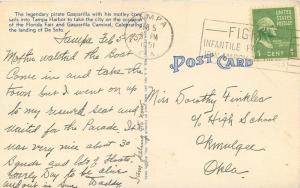 The legendary pirate Gasparilla with his motley
sails into Tampa Harbor to take the city on the
of the Florida Fair and Gasparilla Carnival, Celebrating
the landing of De Soto.
Tampa Feb 5-1951
Mother watched the Boat
Come in and take the
town but I went up to
my reserved seat and
waited for the Parade. It
was very nice about 30
Bands and lots of Floats
Lovely Day to be alive
Daddy
TAMPA
1951
PM
FIGHT
INFANTILE
POST CARD
Miss Dorothy Finkles
c/o High School
Okmulgee
Okla.